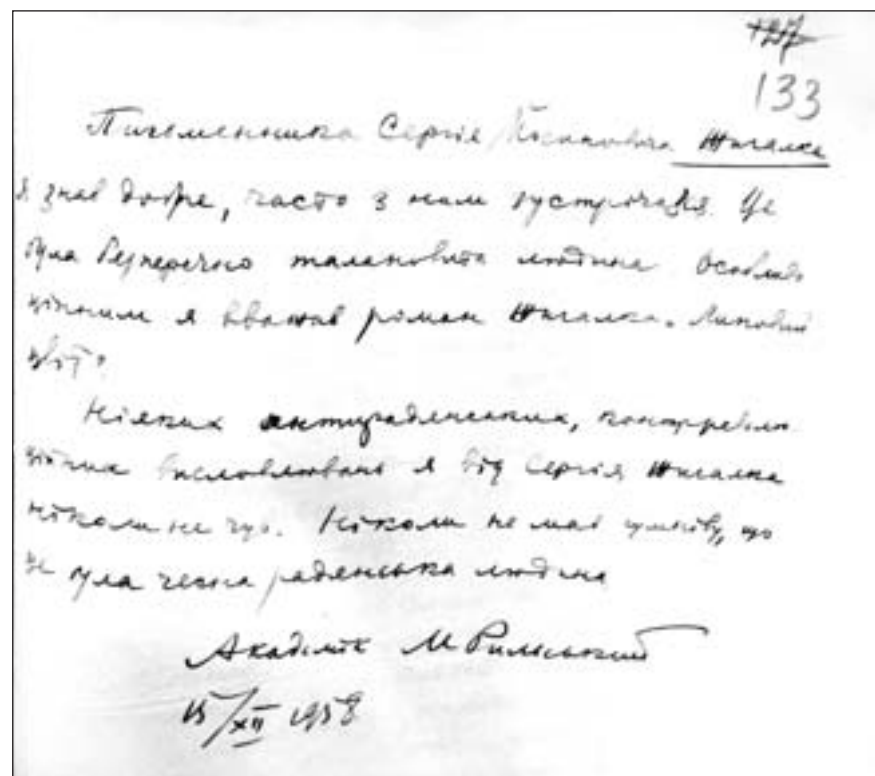 133
Письменника Сергія Йосиповича Жигалка
я знав добре, часто з ним зустрічався. Це
була безперечно талановита людина. Особливо
цінним я вважав роман Жигалка „Липовий
цвіт“.
Ніяких антирадянських, контрреволю
ційних висловлювань я від Сергія Жигалка
ніколи не чув. Ніколи не мав сумніву, що
це була чесна радянська людина
Академік М Рильський
15/XII 1958